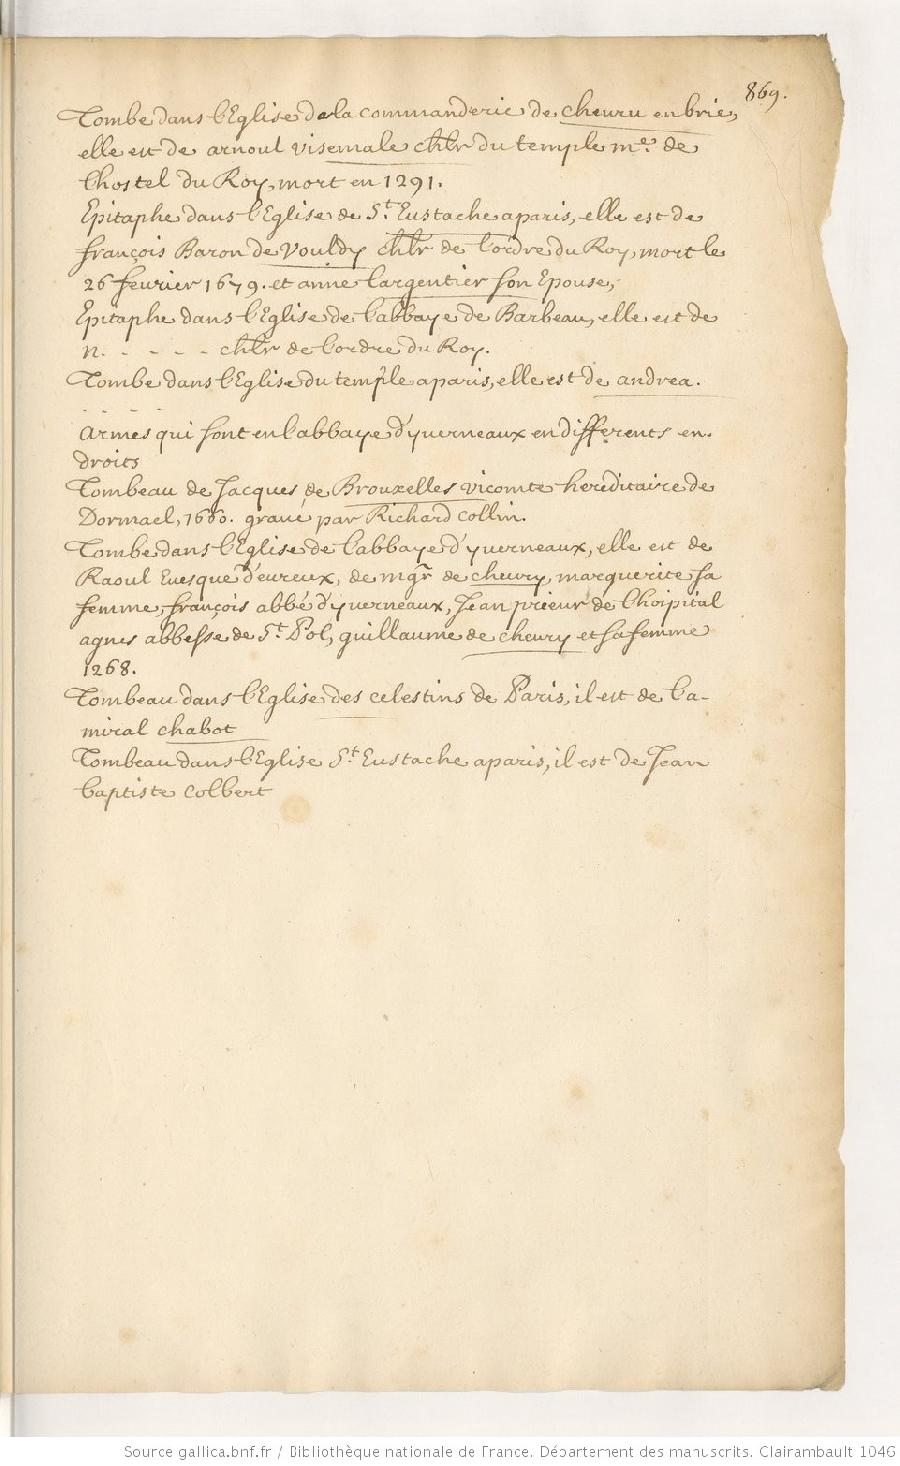 869.
Tombe dans l'Eglise de la commanderie de cheuru en brie,
elle est de arnoul visemale chlr du temple me. de
lhostel du Roy, mort en 1291.
Epitaphe dans l'Eglise de St. Eustache a paris, elle est de
françois Baron de Vouldy chlr de l'ordre du Roy, mort le
26 feurier 1679. et anne Largentier son Epouse,
Epitaphe dans l'Eglise de l'abbaye de Barbeau, elle est de
n. - - - - chlr de l'ordre du Roy.
Tombe dans l'Eglise du temple a paris, elle est de andrea.
- - - -
armes qui sont en l'abbaye d'yuerneaux en differents en-
droits
Tombeau de Jacques de Brouxelles vicomte hereditaire de
Dormael, 1660. graué par Richard Collin.
Tombe dans l'Eglise de l'abbaye d'yuerneaux, elle est de
Raoul Euesque d'eureux, de mgr de cheury, marguerite sa
femme, françois abbé d'yuerneaux, Jean prieur de l'hoipital
agnes abbesse de St. Pol, guillaume de cheury et sa femme
1268.
Tombeau dans l'Eglise des celestins de Paris, il est de l'a-
miral chabot
Tombeau dans l'Eglise St. Eustache a paris, il est de Jean
baptiste Colbert
Source gallica.bnf.fr / Bibliothèque nationale de France. Département des manuscrits. Clairambault 1046